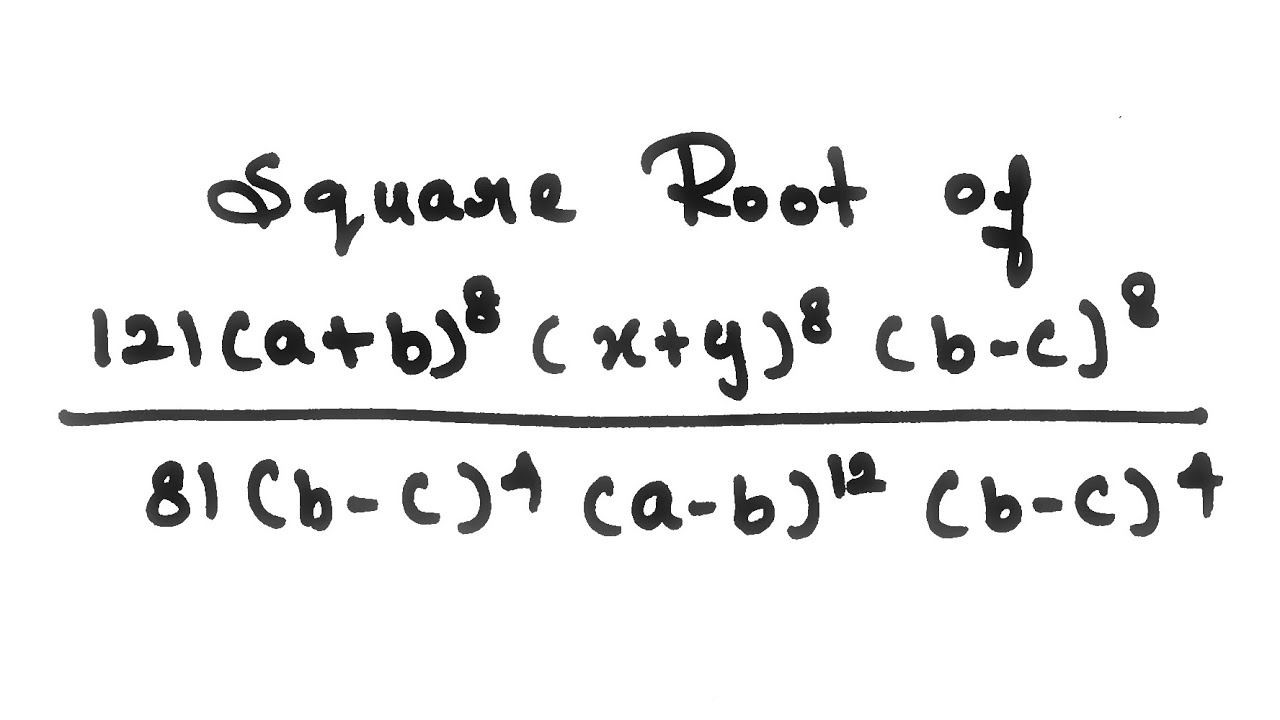 Square Root of
121(a+b)⁸ (x+y)⁸ (b-c)⁸
81(b-c)⁴ (a-b)¹² (b-c)⁴